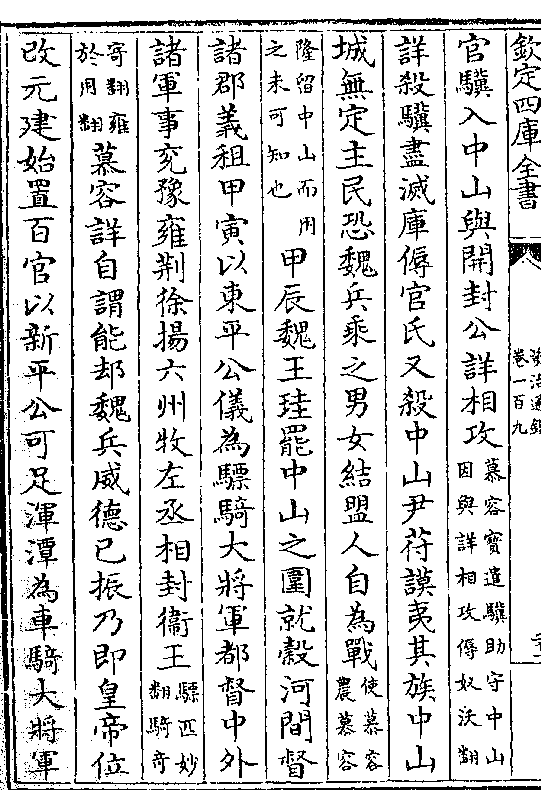 欽定四庫全書
資治通鑑
卷一百九
官驥入中山與開封公詳相攻慕容寶遣驥助守中山因與詳相攻傉奴沃翻
詳殺驥盡滅庫傉官氏又殺中山尹苻謨夷其族中山
城無定主民恐魏兵乘之男女結盟人自為戰使慕容農慕容
隆留中山而用之未可知也甲辰魏王珪罷中山之圍就穀河間督
諸郡義租甲寅以東平公儀為驃騎大將軍都督中外
諸軍事兖豫雍荆徐揚六州牧左丞相封衞王驃匹妙翻騎奇
寄翻雍於用翻慕容詳自謂能却魏兵威德已振乃即皇帝位
改元建始置百官以新平公可足渾潭為車騎大將軍